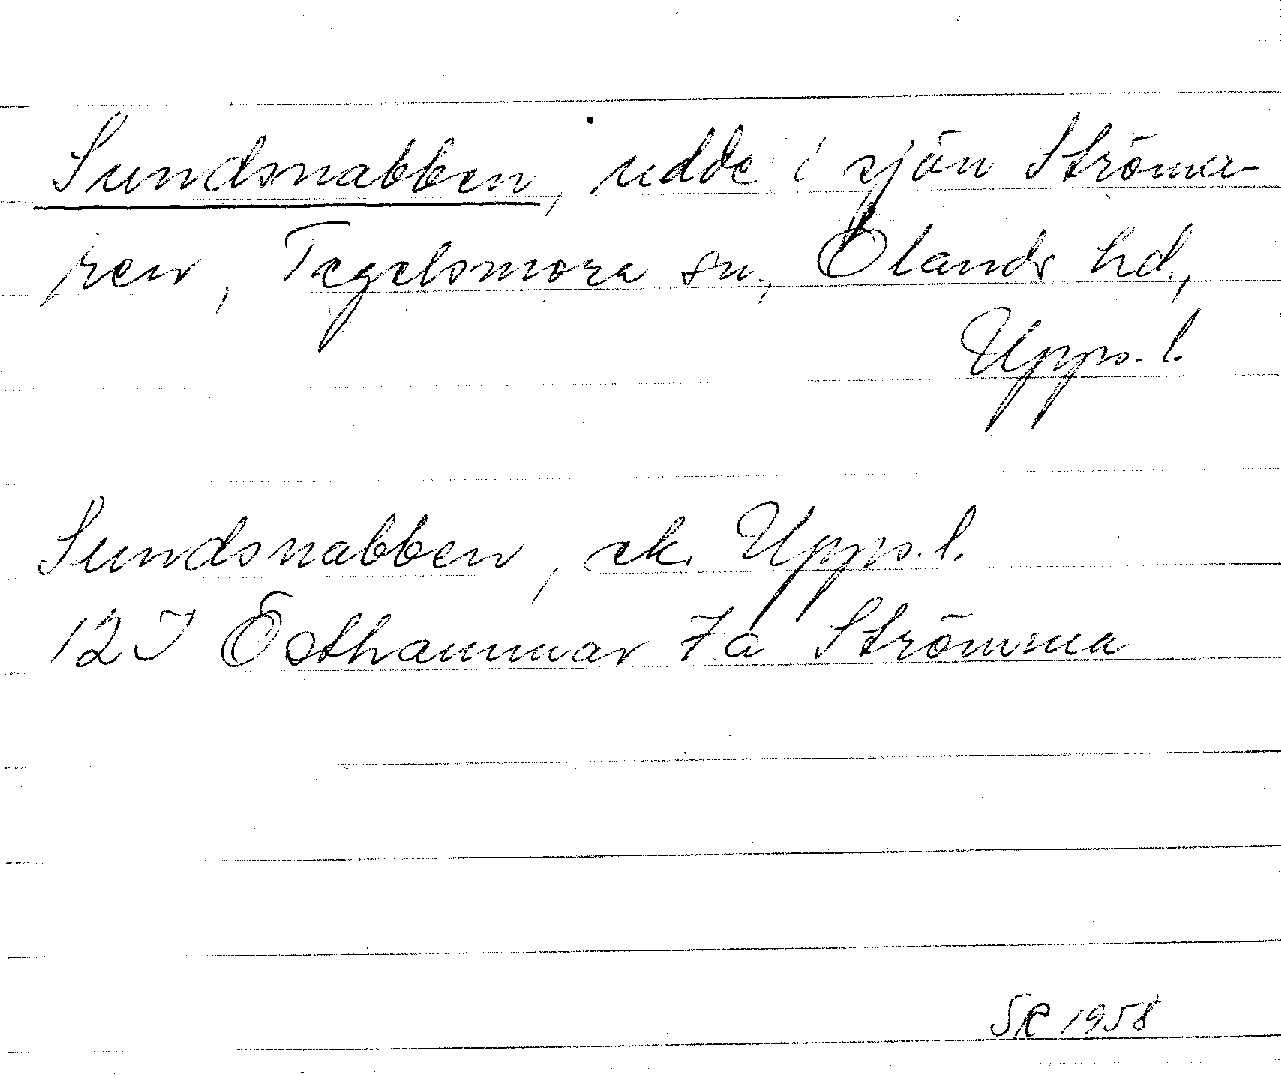 Sundsnabben, udde i sjön Ströma-
ren, Tegelsmora sn, Olands hd.,
Upps. l.
Sundsnabben, ek. Upps. l.
12 I Östhammar 7a Strömma
SR 1958